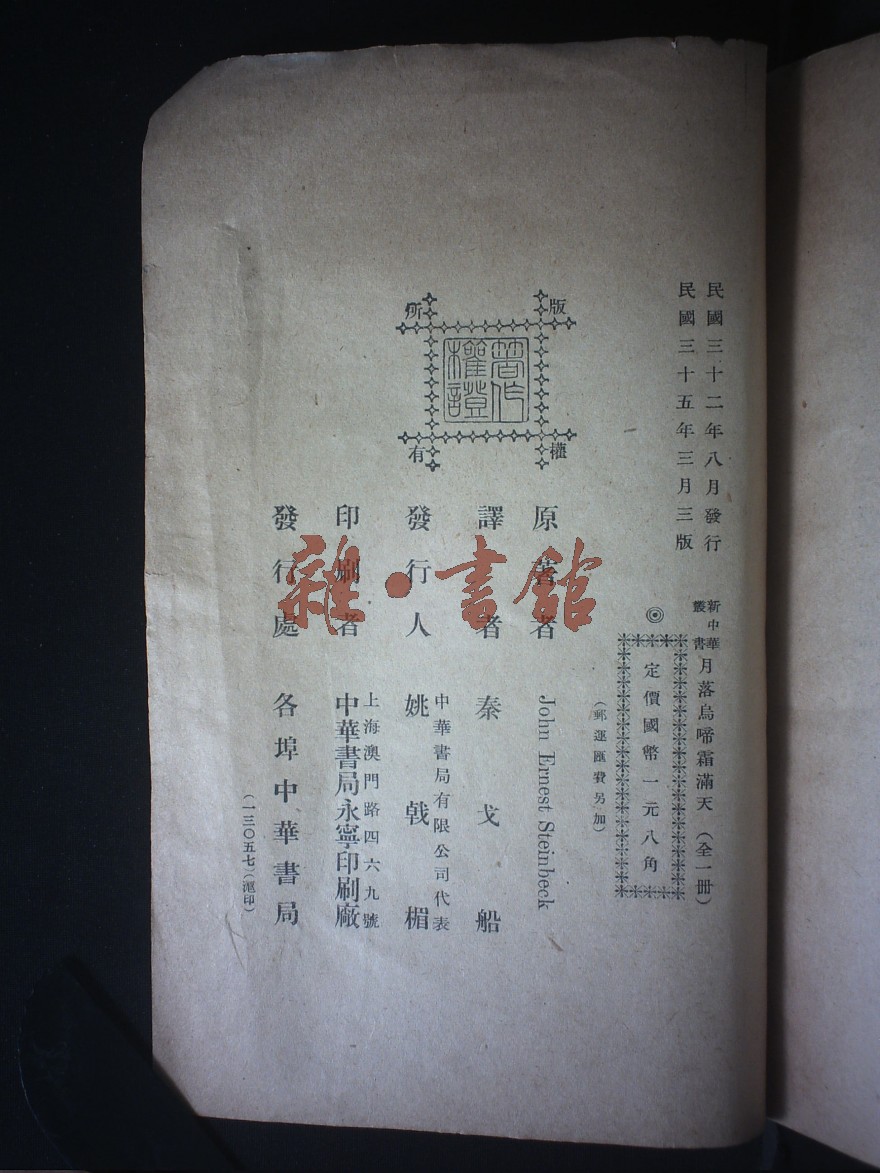 民國三十二年八月發行
民國三十五年三月三版
新中華叢書
月落烏啼霜滿天（全一冊）
◎
定價國幣一元八角
（郵運匯費另加）
版權所有
著作權證
原著者 John Ernest Steinbeck
譯者 秦戈船
發行人 中華書局有限公司代表 姚戟楣
印刷者 上海澳門路四六九號 中華書局永寧印刷廠
發行處 各埠中華書局
（一三〇五七）（滬印）
雜·書館